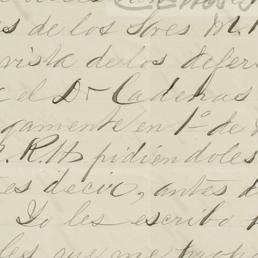 s de los Sores M.
vista de los defer
a el Dr Cadenas
gamente en 1º de
. R. H. pidiéndoles
es decir, antes d
Yo les escribo
les que me propo